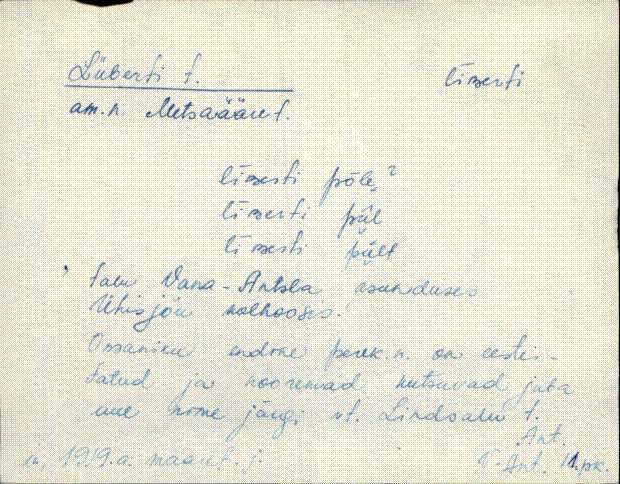 Lüberti t. līʙerti
am.n. Metsaääre t.
līʙerti põle²
līʙerti pǖl
līʙerti pǖlt
talu Vana-Antsla asunduses
Ühisjõu kolhoosis.
Omaniku endine perek.n. on eesti-
tatud ja nooremad kutsuvad juba
uue nime järgi vt. Lindsalu t.
Ant.
1919.a. maaret. j. V-Ant. 11.pk.